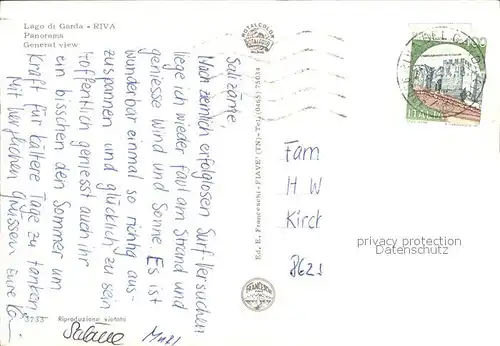 Lago di Garda - RIVA
Panorama
General view
Salizäme,
Nach ziemlich erfolglosen Surf-Versuchen
liege ich wieder faul am Strand und
geniesse Wind und Sonne. Es ist
wunderbar einmal so richtig aus-
zuspannen und glücklich zu sein
Hoffentlich geniesst auch ihr
ein bisschen den Sommer um
Kraft für kältere Tage zu tanken.
Mit herzlichen Grüssen Eure
3733 Riproduzione vietata
ROTALCOLOR
ITALIA
Fam
H W
Kirch
8621
privacy protection
Datenschutz